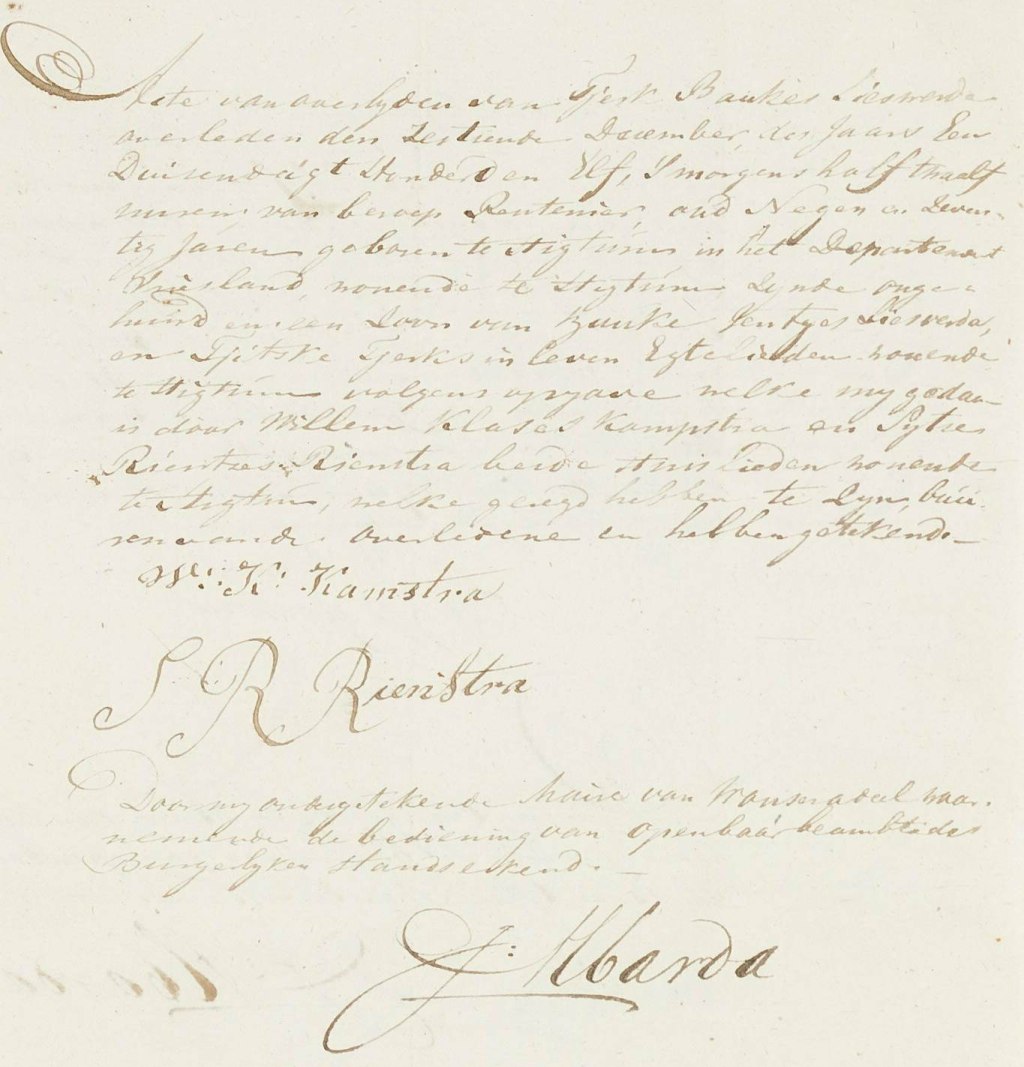 Acte van overlyden van Tjerk Baukes Sieswerda
overleden den Zestiende December, des Jaars Een
Duisendagt Honderd en Elf, Smorgens half twaalf
uuren, van beroep Rentenier, oud Negen en Seven-
tig Jaren geboren te Higtum in het Departement
Vriesland, wonende te Higtum Zynde onge-
huird en een Zoon van Bauke Jentjes Sieswerda,
en Tjitske Tjerks in leven Egtelieden wonende
te Higtum volgens opgave welke my gedaan
is door Willem Klases Kampstra en Sytse
Rientses Rienstra beide Huislieden wonende
te Higtum, welke gezegd hebben te Zyn, buu-
ren van de overledene en hebben getekend.—
Wm: K: Kamstra
S R Rienstra
Door my ondergetekende Maire van Wonseradeel waar-
nemende de bediening van openbaar beambte des
Burgelyken Stands erkend.—
J: Albarda